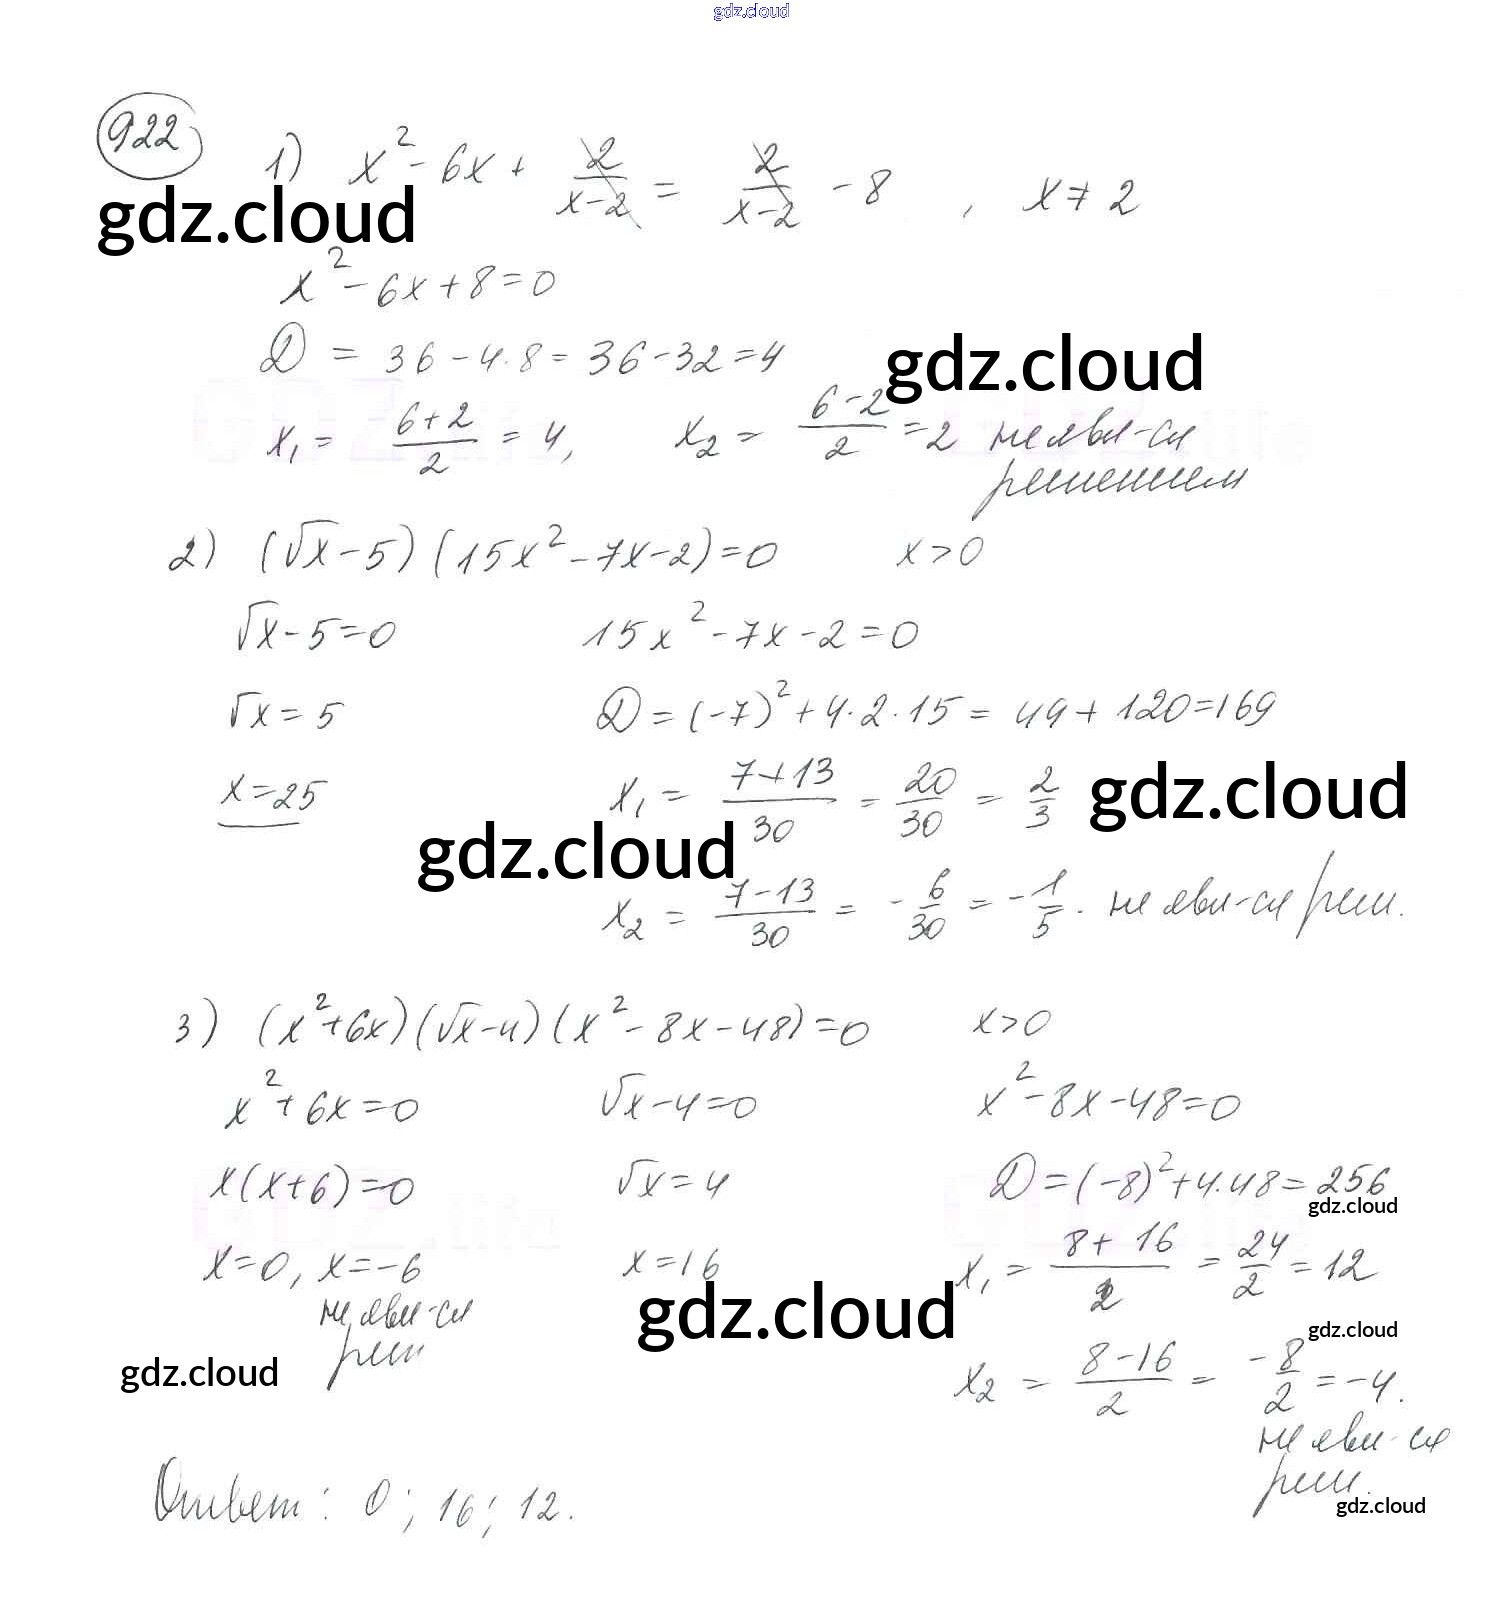 gdz.cloud
922
1) x² - 6x + 2/(x-2) = 2/(x-2) - 8 , x ≠ 2
gdz.cloud
x² - 6x + 8 = 0
D = 36 - 4·8 = 36 - 32 = 4
gdz.cloud
x₁ = (6+2)/2 = 4, x₂ = (6-2)/2 = 2 не явл-ся
решением
2) (√x - 5)(15x² - 7x - 2) = 0 x > 0
√x - 5 = 0 15x² - 7x - 2 = 0
√x = 5 D = (-7)² + 4·2·15 = 49 + 120 = 169
x = 25 x₁ = (7+13)/30 = 20/30 = 2/3
gdz.cloud
gdz.cloud
x₂ = (7-13)/30 = -6/30 = -1/5. не явл-ся реш.
3) (x² + 6x)(√x - 4)(x² - 8x - 48) = 0 x > 0
x² + 6x = 0 √x - 4 = 0 x² - 8x - 48 = 0
x(x+6) = 0 √x = 4 D = (-8)² + 4·48 = 256
gdz.cloud
x = 0, x = -6 x = 16 x₁ = (8+16)/2 = 24/2 = 12
не явл-ся
реш
gdz.cloud
gdz.cloud
gdz.cloud
x₂ = (8-16)/2 = -8/2 = -4.
не явл-ся
реш.
Ответ: 0; 16; 12.
gdz.cloud